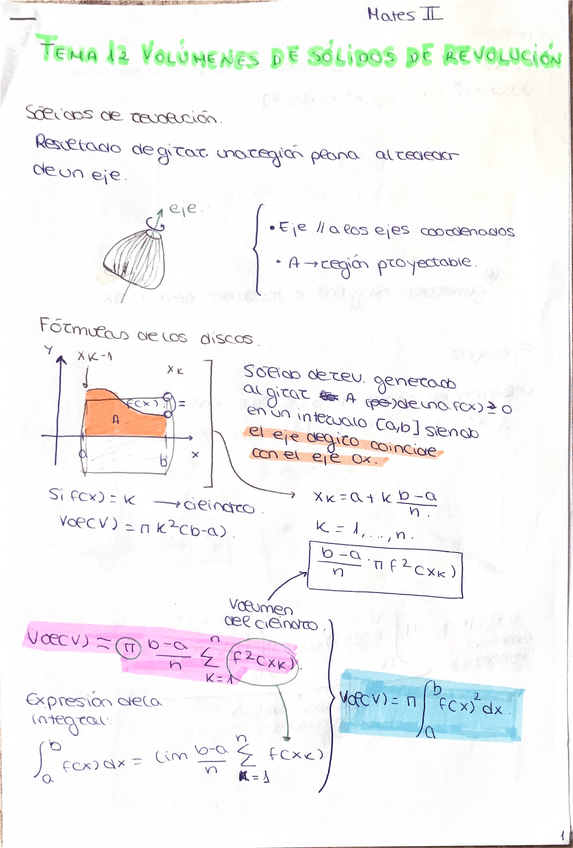 Mates II
TEMA 12 VOLÚMENES DE SÓLIDOS DE REVOLUCIÓN
Sólidos de revolución.
Resultado de girar una región plana alrededor
de un eje.
eje.
• Eje // a los ejes coordenados
• A → región proyectable.
Fórmulas de los discos.
Y
xk-1
xk
f(x)
=
A
a
b
x
Sólido de rev. generado
al girar A de una f(x) ≥ 0
en un intervalo [a,b] siendo
el eje de giro coincide
con el eje Ox.
Si f(x) = K → cilindro.
Vol(V) = π K² (b-a).
xk = a + k b-a/n.
K = 1, ..., n.
b-a/n · π f²(xk)
Volumen
del cilindro.
Vol(V) ≈ π b-a/n n∑k=1 f²(xk)
Vol(V) = π ∫ab f(x)² dx.
Expresión de la
integral:
∫ab f(x) dx = lim b-a/n n∑k=1 f(xk)
1